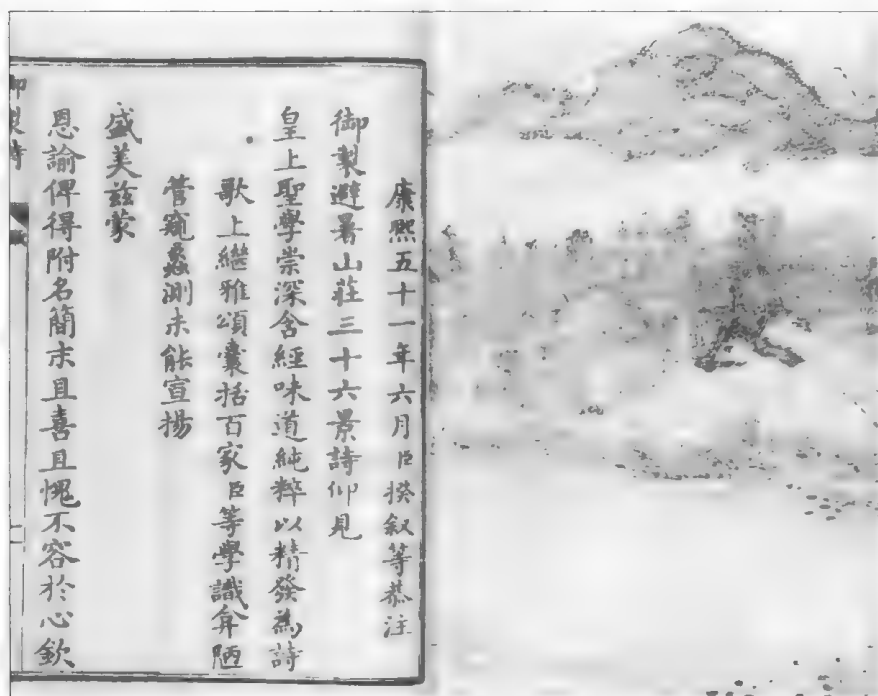 康熙五十一年六月臣揆叙等恭注
御製避暑山莊三十六景詩仰見
皇上聖學崇深含經味道純粹以精發為詩
歌上繼雅頌囊括百家臣等學識弇陋
管窺蠡測未能宣揚
盛美兹蒙
恩諭俾得附名簡末且喜且愧不容於心欽